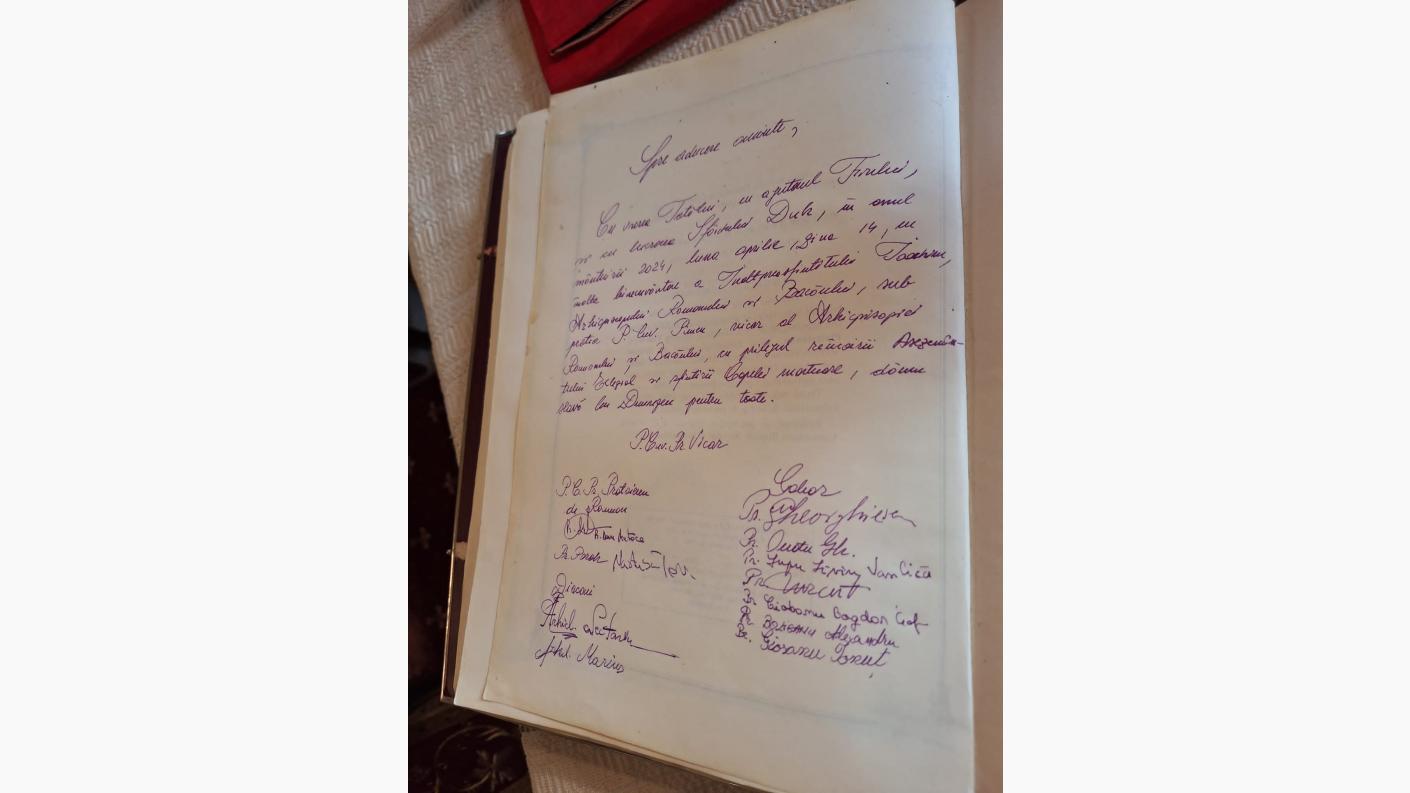 Spre aducere aminte,
Cu vrerea Tatălui, cu ajutorul Fiului,
și cu lucrarea Sfântului Duh, în anul
mântuirii 2024, luna aprilie, ziua 14, cu
înalta binecuvântare a Înaltpreasfințitului Ioachim,
Arhiepiscopului Romanului și Bacăului, sub
protia P. Cuv. Pimen, vicar al Arhiepiscopiei
Romanului și Bacăului, cu prilejul reînnoirii Așezămân-
tului Eclezial și sfințirii Capelei mortuare, dăm
slavă lui Dumnezeu pentru toate.
P. Cuv. Pr Vicar
P. C. Pr. Protoiereu
de Roman
Pr. Paroh
Diaconi
Arhid.
Arhid. Marius
Sobor
Pr. Gheorghiescu
Pr. Gh.
Pr. Lupu Vasilică
Pr.
Pr. Ciobanu Bogdan
Pr. Alexandru
Pr. Ionuț